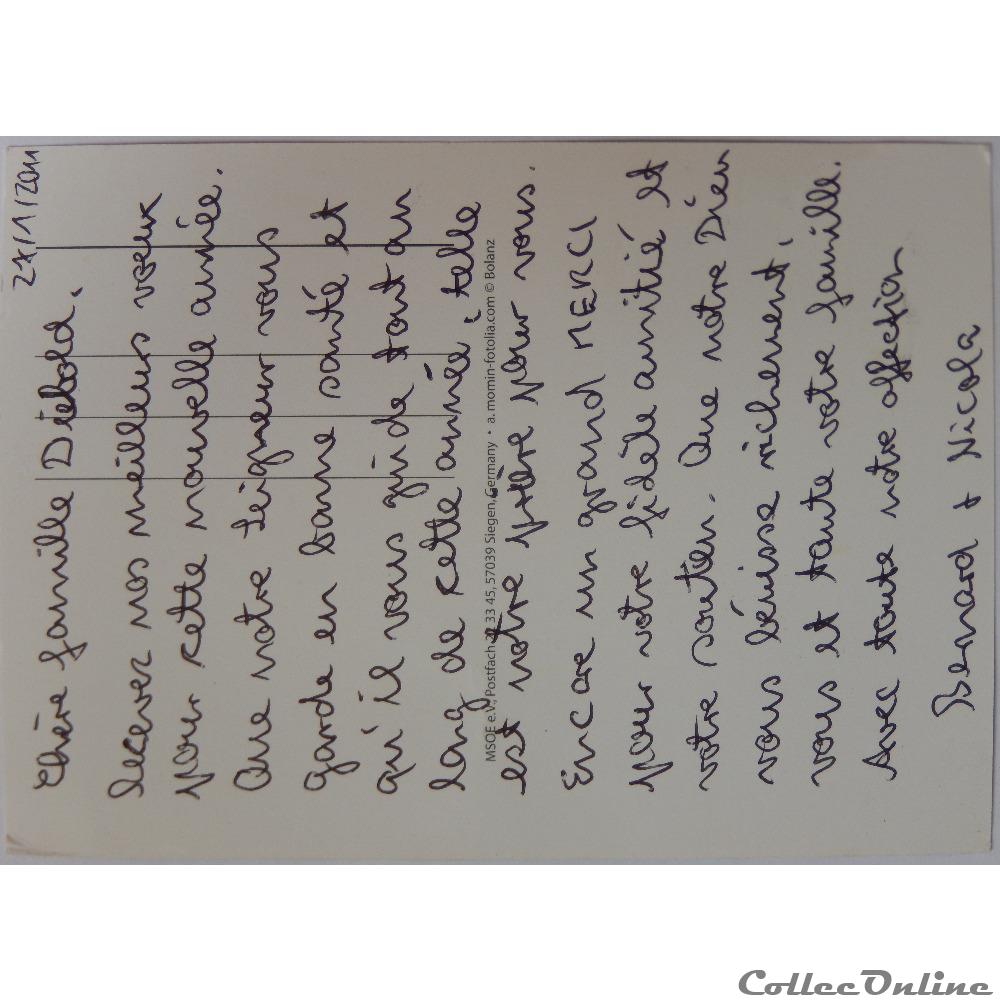 27/1/2011
Chère famille Diebold.
Recevez nos meilleurs voeux
pour cette nouvelle année.
Que notre Seigneur vous
garde en bonne santé et
qu'il vous guide tout au
long de cette année, telle
est notre prière pour vous.
MSOE e.V., Postfach 33 45, 57039 Siegen, Germany • a. momin-fotolia.com © Bolanz
Encore un grand MERCI
pour votre fidèle amitié et
votre soutien. Que notre Dieu
vous bénisse richement,
vous et toute votre famille.
Avec toute notre affection
Bernard + Nicola
CollecOnline